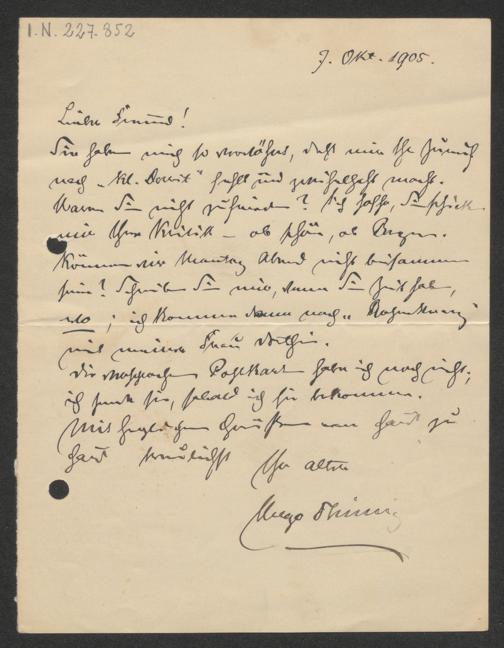 I.N. 227.852
7. Okt. 1905.
Lieber Freund!
Sie haben mich so verwöhnt, daß mir Ihr
nach „Kl. Dorrit“ fehlt und zweifelhaft macht.
Waren Sie nicht zufrieden? Ich hoffe, Sie schicken
mir Ihre Kritik – ob schön, ob Regen.
Können wir Montag Abend nicht beisammen
sein? Schreiben Sie mir, wenn Sie Zeit haben,
wo; ich komme dann nach
mit meiner Frau dorthin.
Die versprochene Postkarte habe ich noch nicht;
ich sende sie, sobald ich sie bekomme.
Mit herzlichen Grüßen von Haus zu
Haus treulichst Ihr alter
Hugo Thimig